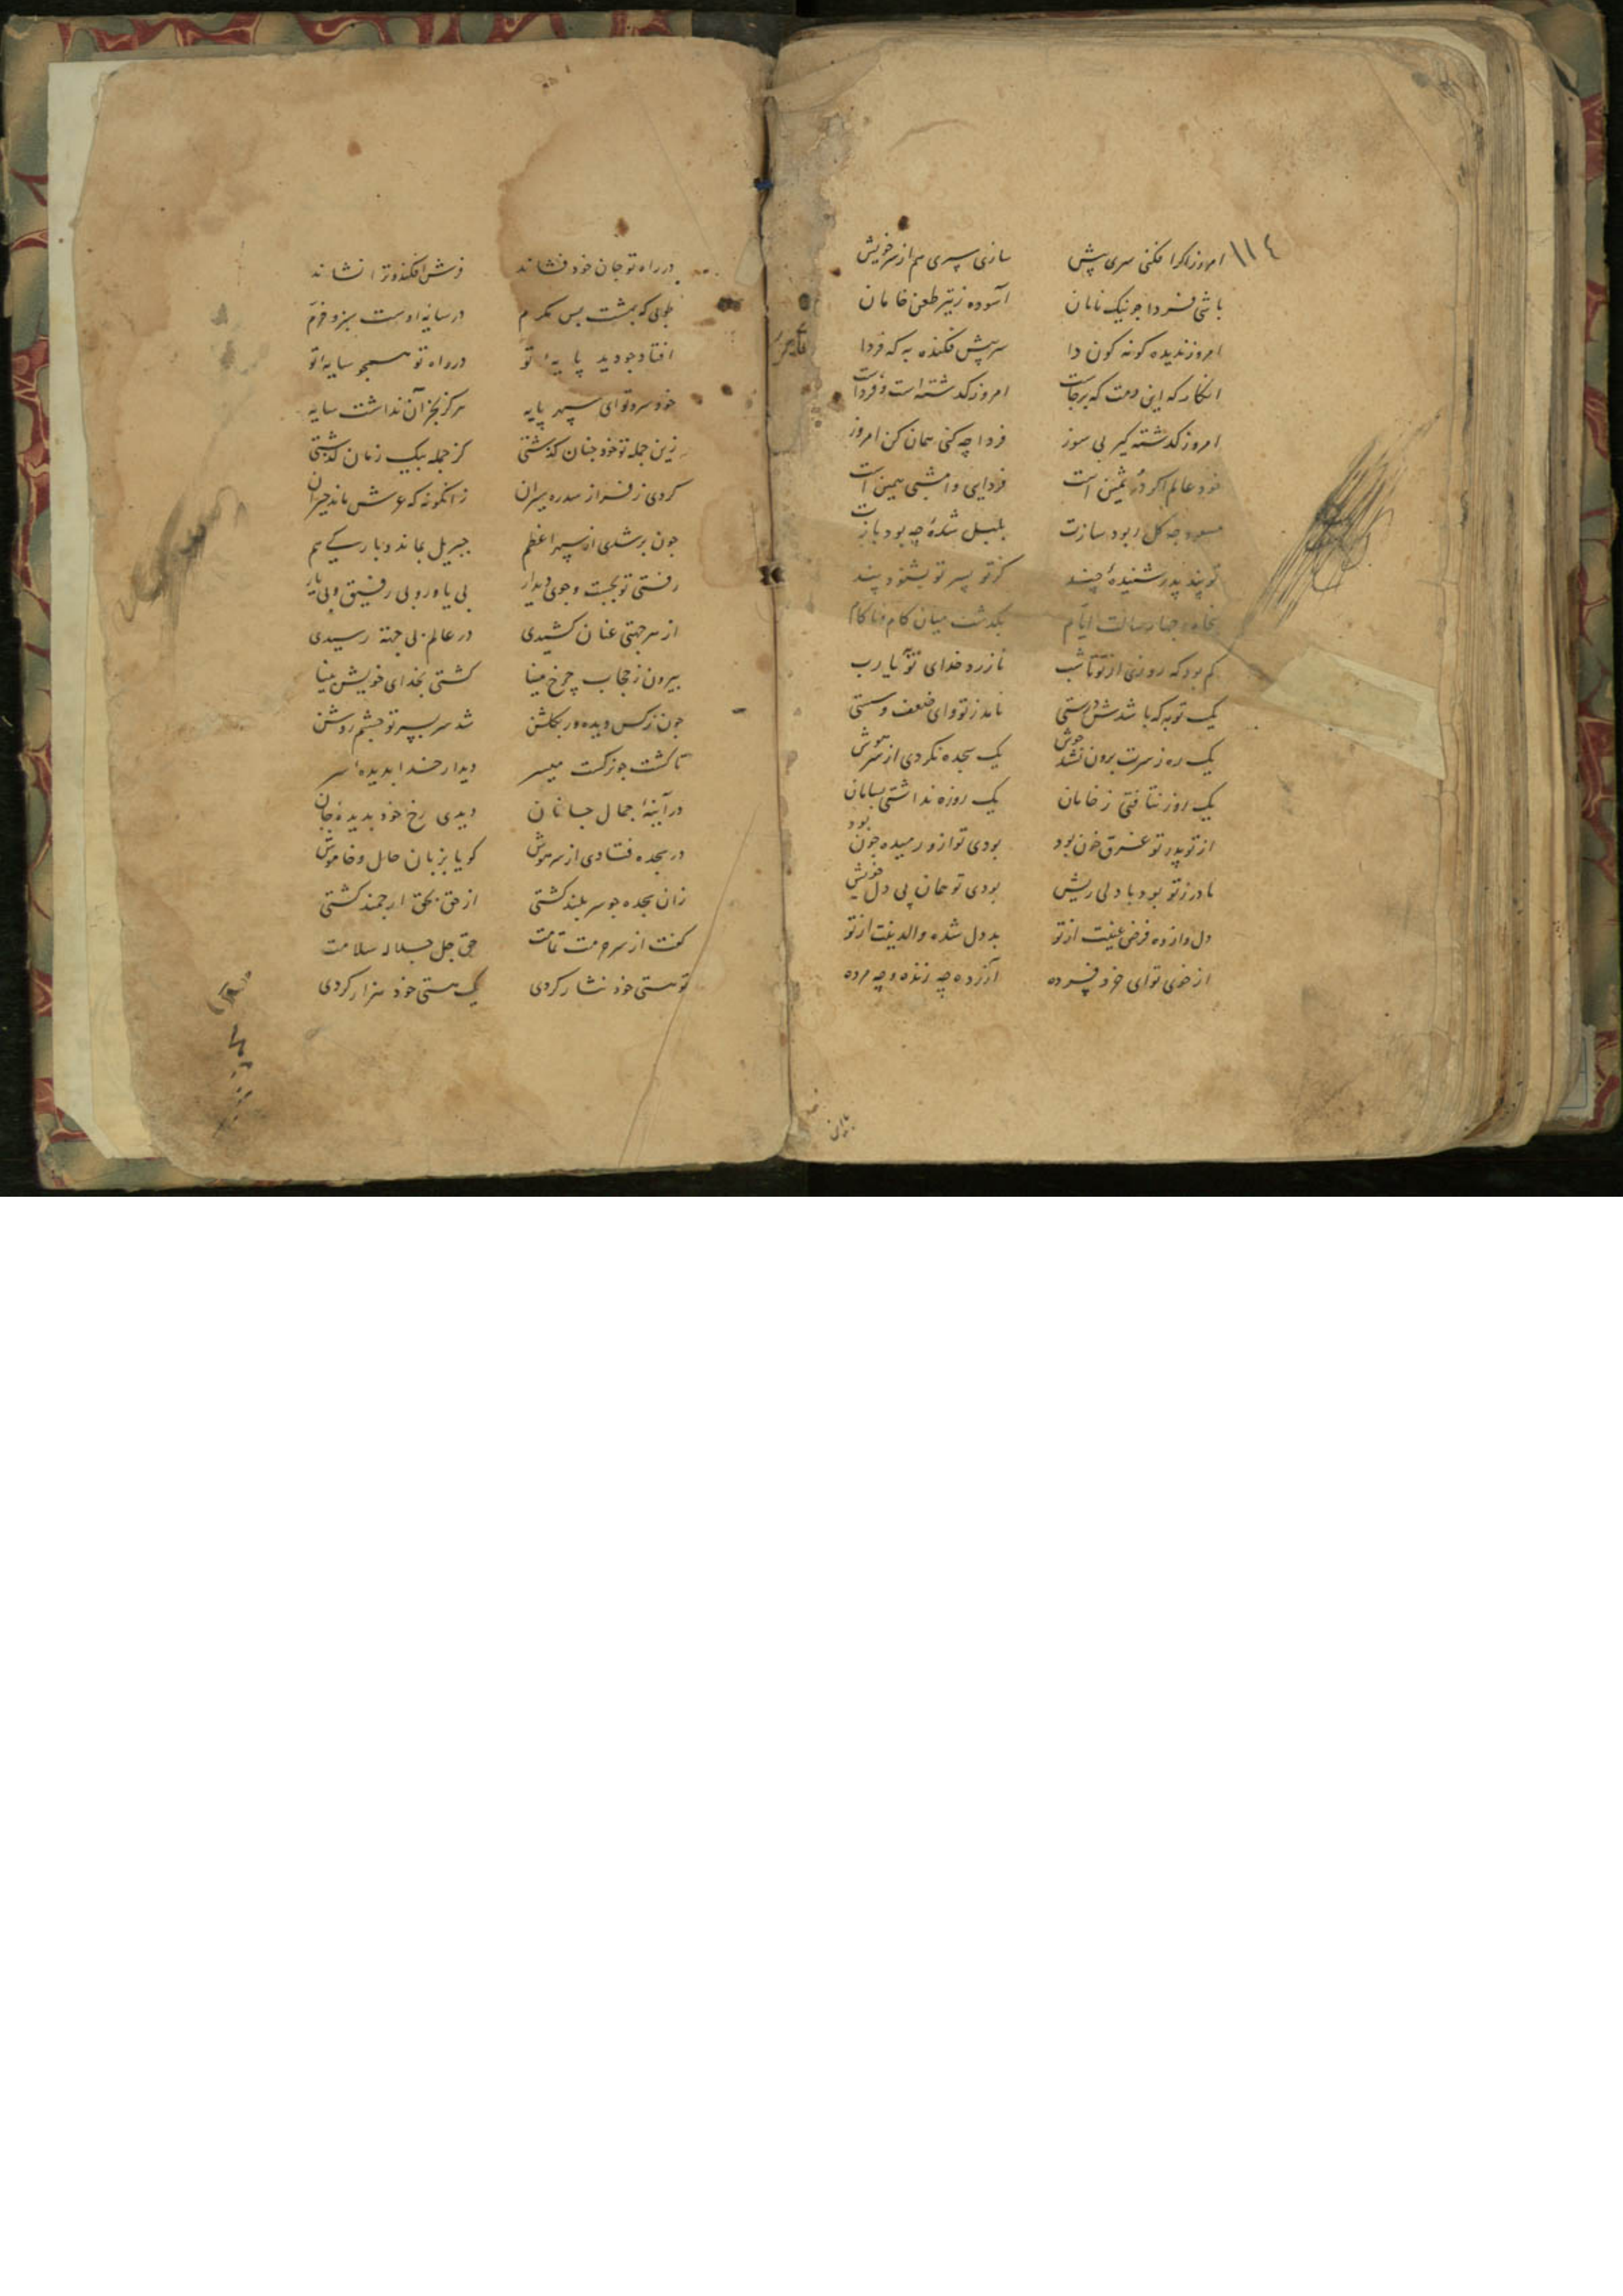 ۱۱۴
امروز اگر افکنی سری پیش سازی سپری هم از سر خویش
باشی فردا جو نیک نامان آسوده ز تیر طعن خامان
امروز ندیده کونه کون دا سر پیش فکنده به که فردا
انکار که این دمت که برجاست امروز کذشته است و فرداست
امروز کذشته کیر بی سوز فردا چه کنی همان کن امروز
خود عالم اکر در ثمین است فردایی و امشبی همین است
کل ربود سازت بلبل شدهٔ چه بود بازت
تو پند پدر شنیدهٔ چند کر تو پسر تو بشنود پند
پنجاه و چهار سالت ایام بکذشت میان کام و ناکام
کم بود که روزی از تو تا شب نازرد خدای تو یا رب
یک توبه که باشدش درستی نامد ز تو وای ضعف و سستی
یک ره ز سرت برون نشد جوش یک سجده نکردی از سر هوش
یک روز نتافتی ز خامان یک روزه نداشتی بسامان
از تو پدر تو غرق خون بود بودی تو ازو رمیده جون بود
مادر ز تو بود با دلی ریش بودی تو همان پی دل خویش
دل واز ده فرض عینت از تو بد دل شده والدینت از تو
از خوی تو ای خرد فسرده آزرده چه زنده و چه مرده
در راه تو جان خود فشاند فرش افکند و ترا نشاند
طوبی که بهشت بس مکرم در سایهٔ اوست سبز و خرم
افتاد جو دید پایهٔ تو در راه تو همجو سایهٔ تو
خود سرو تو ای سپهر پایه هرکز بجز آن نداشت سایه
زین جمله تو خود جنان کذشتی کز جمله بیک زمان کذشتی
کردی ز فراز سدره سیران زانکونه که عرش ماند حیران
جون برشدی از سپهر اعظم جبریل بماند و بارکی هم
رفتی تو بجست و جوی دیدار بی یاور و بی رفیق و بی یار
از هر جهتی عنان کشیدی در عالم بی جهته رسیدی
بیرون ز حجاب چرخ مینا کشتی بخدای خویش بینا
جون نرکس دیده ور بکلشن شد سر بسر تو جشم روشن
تا کشت جو نرکست میسر دیدار خدا بدیدهٔ سر
در آینهٔ جمال جانان دیدی رخ خود بدیدهٔ جان
در سجده فتادی از سر هوش کویا بزبان حال و خاموش
زان سجده جو سر بلند کشتی از حق بحق ارجمند کشتی
کفت از سر حرمت تمامت حق جل جلاله سلامت
تو هستی خود نثار کردی یک هستی خود هزار کردی